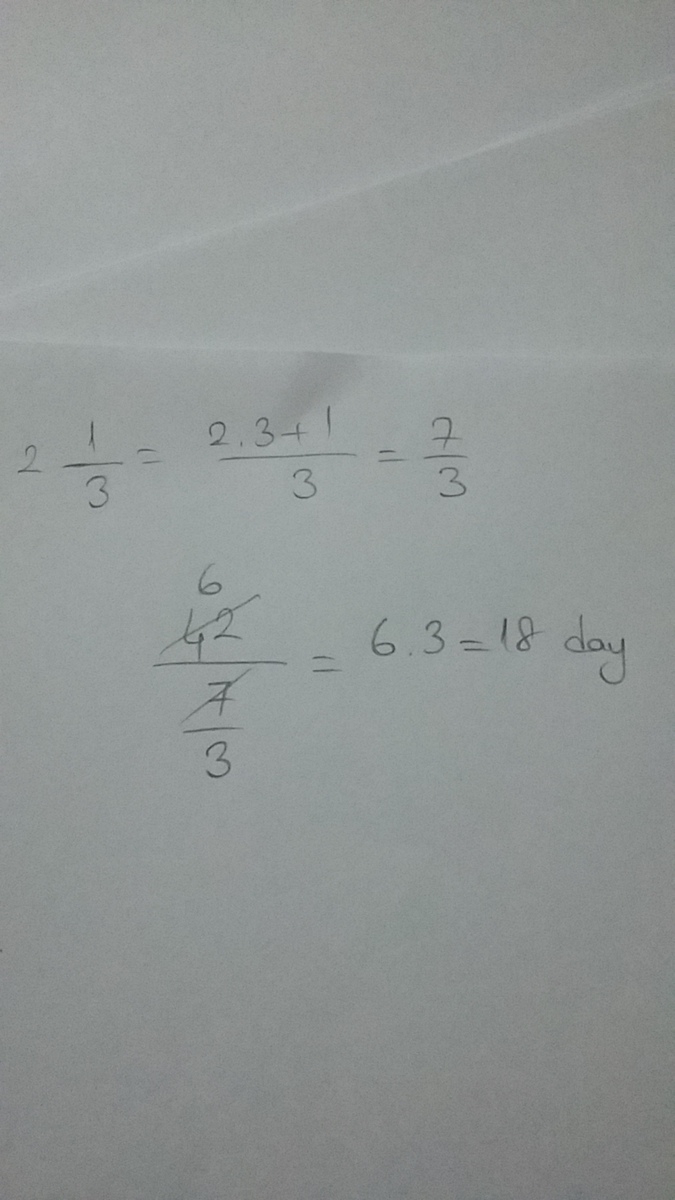 2 1/3 = (2.3+1)/3 = 7/3
6
42/(7/3) = 6.3=18 day